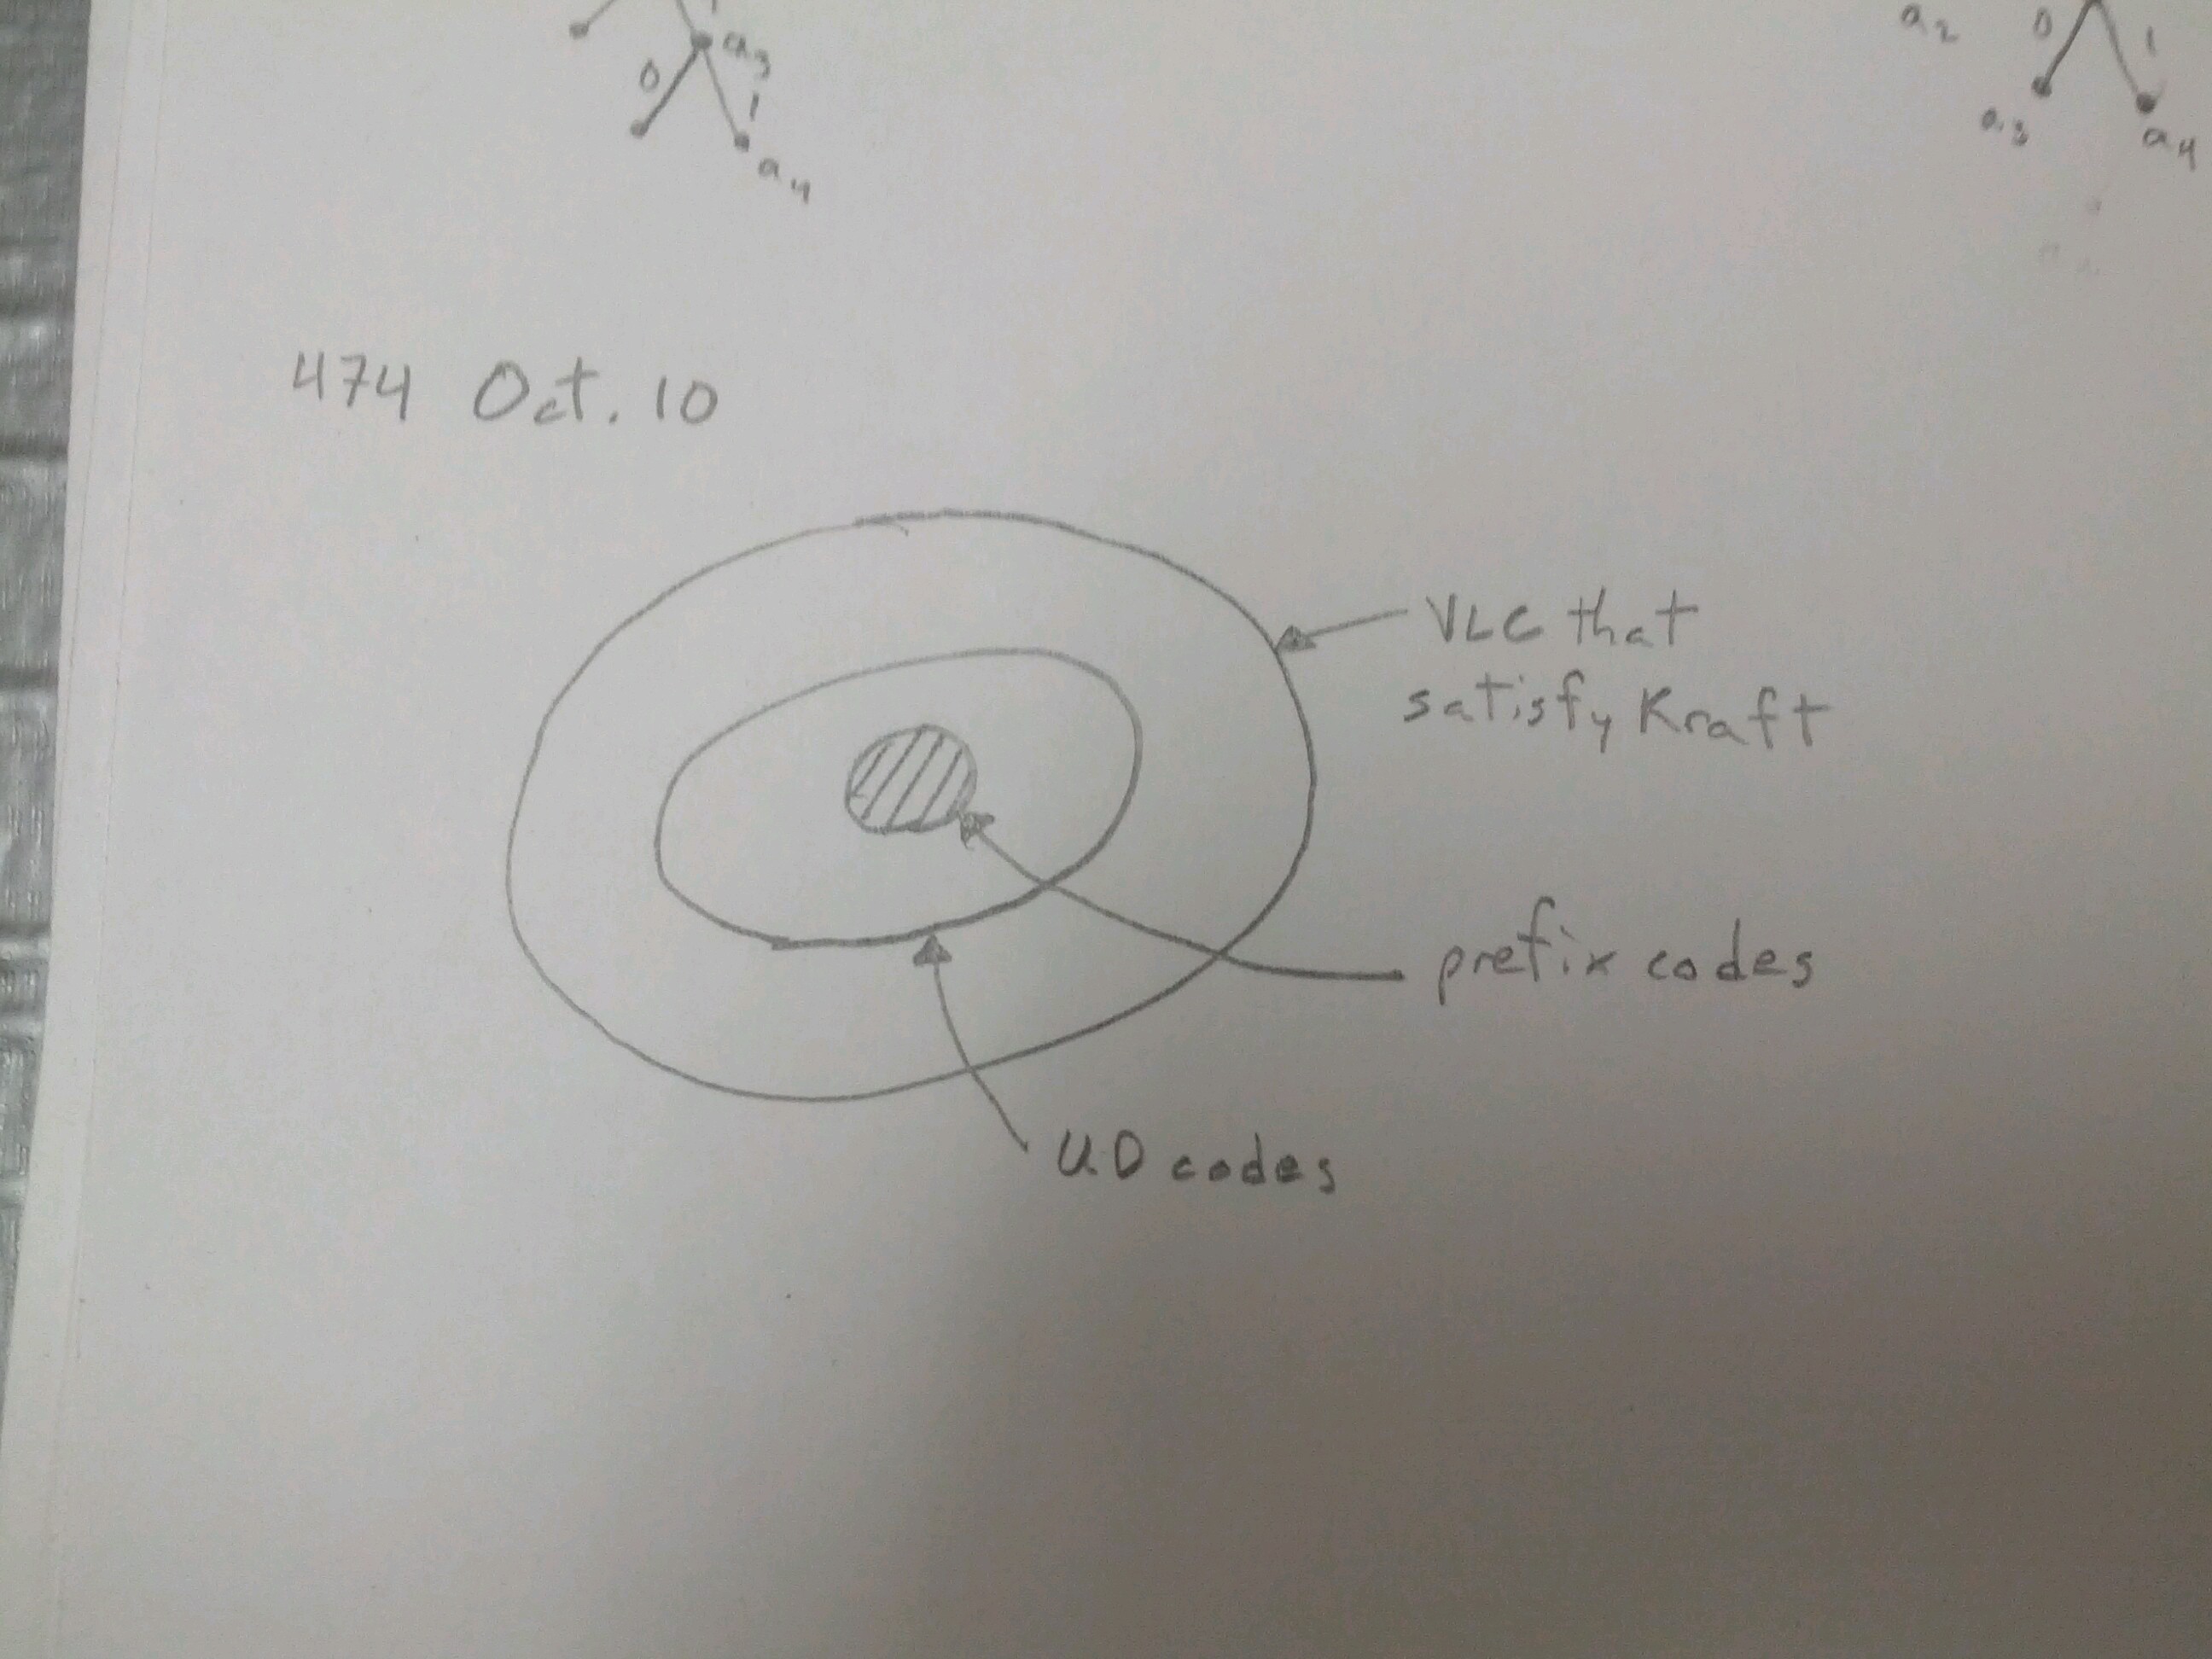 a3
0
1
a4
a2
0
1
a3
a4
474 Oct. 10
VLC that
satisfy Kraft
prefix codes
U.D codes